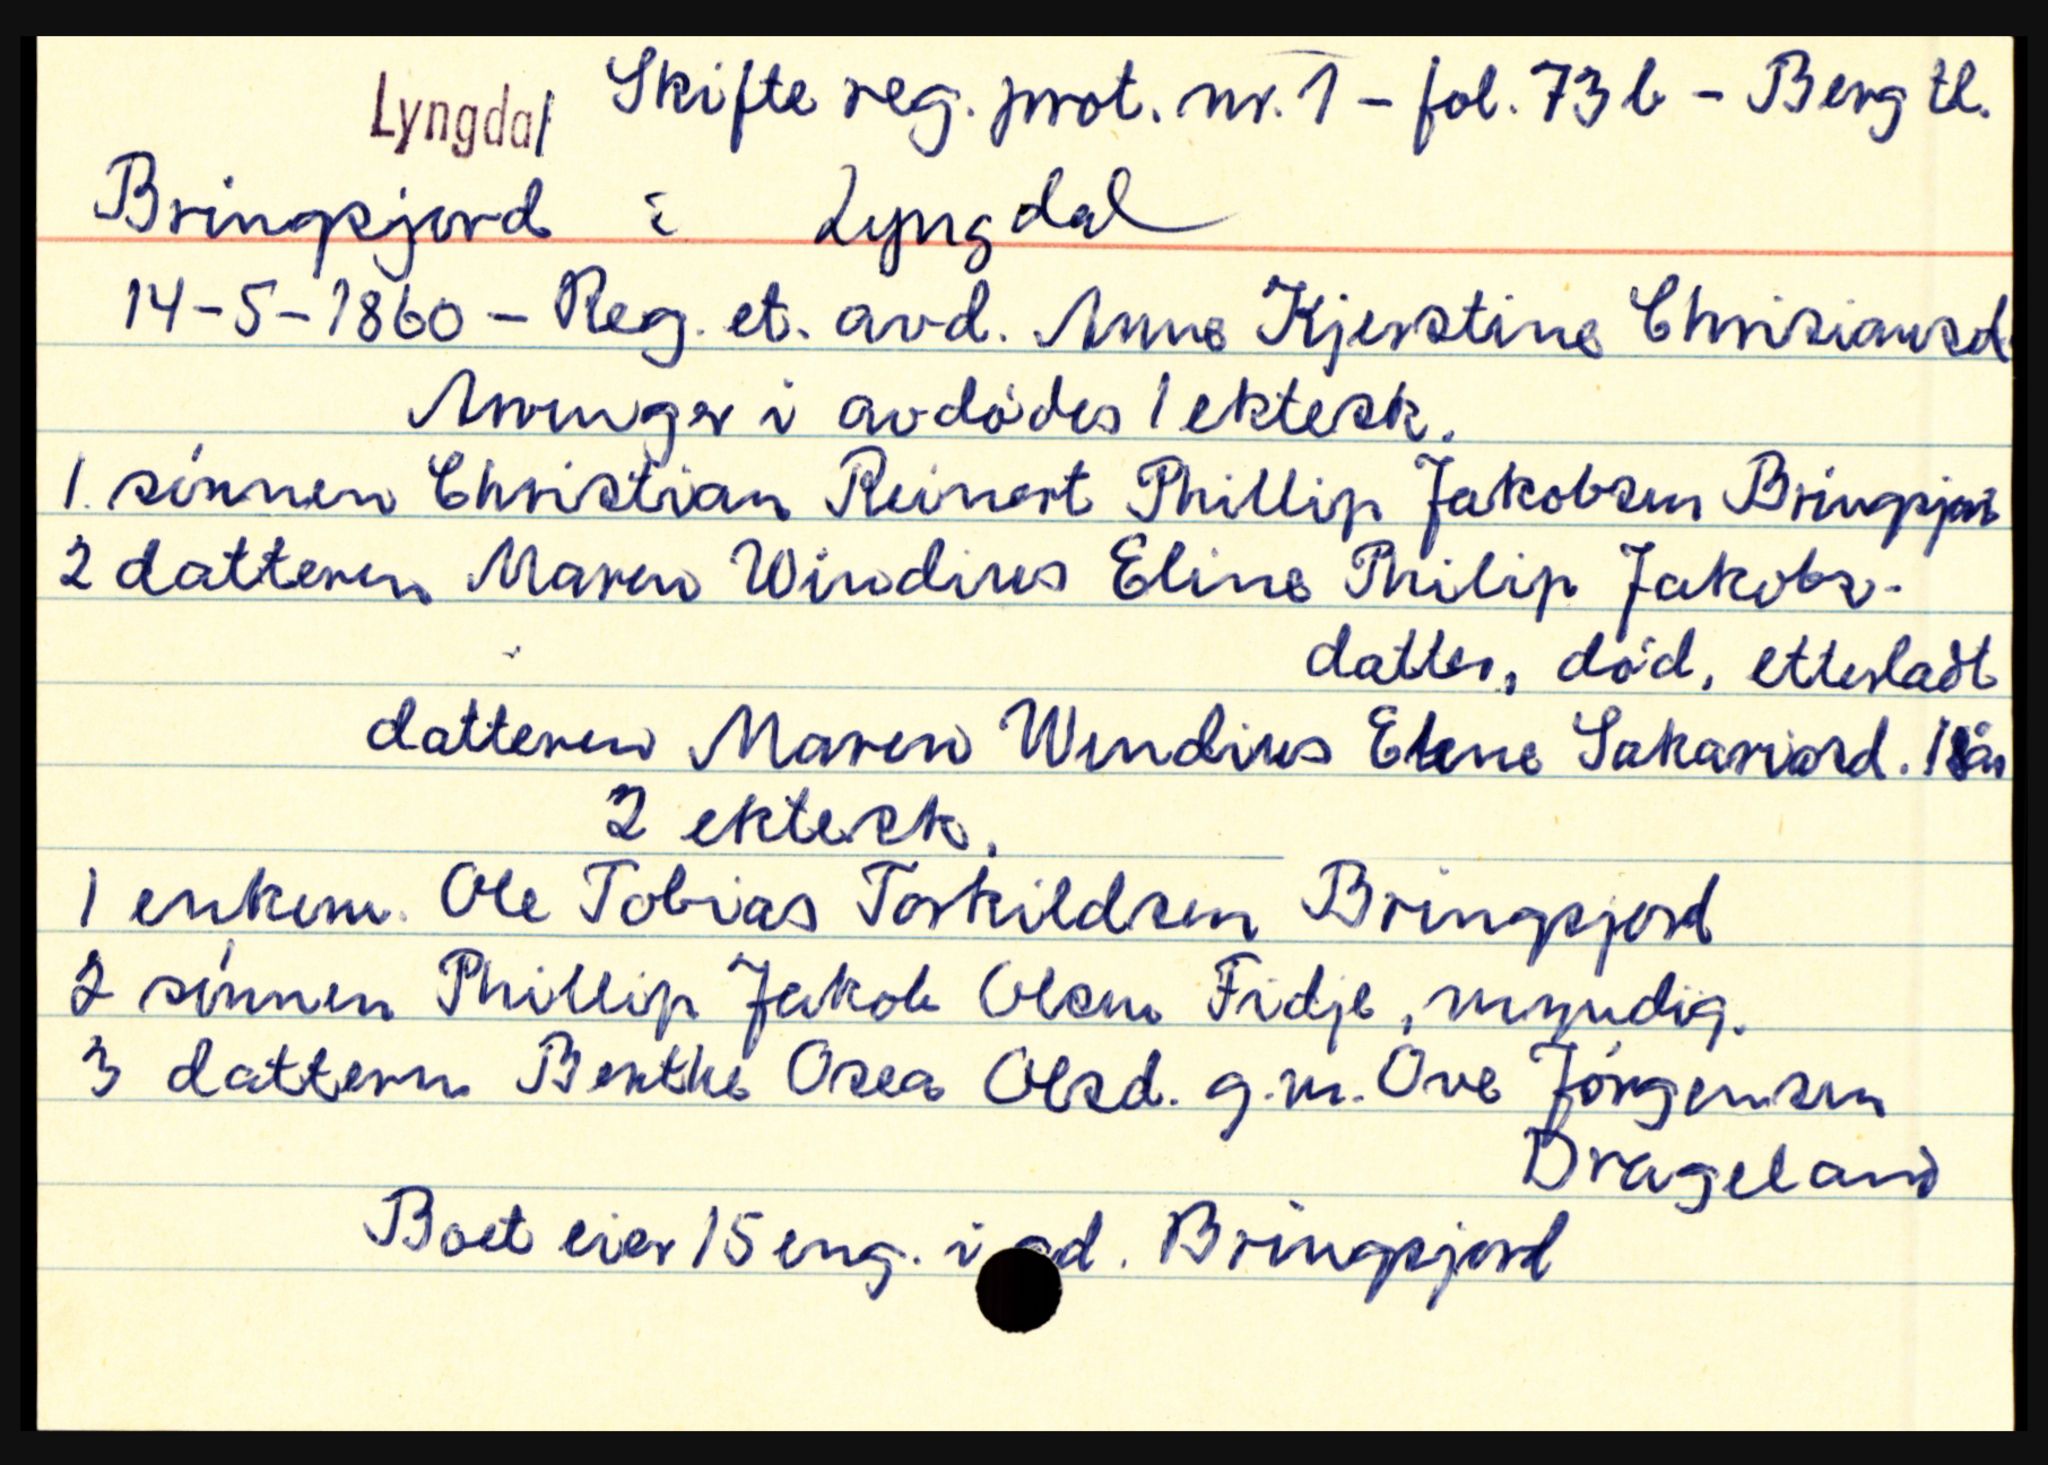 Lyngdal Skifte reg. prot. nr. 1 - fol. 73 b - Berg tl.
Bringsjord i Lyngdal
14-5-1860 - Reg. et. avd. Anne Kjerstine Chrisiansd
Arvinger i avdødes 1 ektesk.
1. sønnen Christian Reinert Phillip Jakobsen Bringsjord
2 datteren Maren Windius Eline Philip Jakobs-
datter, død, etterladt
datteren Maren Wendius Elene Sakariasd. 18 år
2 ektesk.
1 enkem. Ole Tobias Torkildsen Bringsjord
2 sønnen Phillip Jakob Olsen Fidje, myndig.
3 datteren Berthe Osea Olsd. g.m. Ove Jørgensen
Drageland
Boet eier 15 eng. i gd. Bringsjord